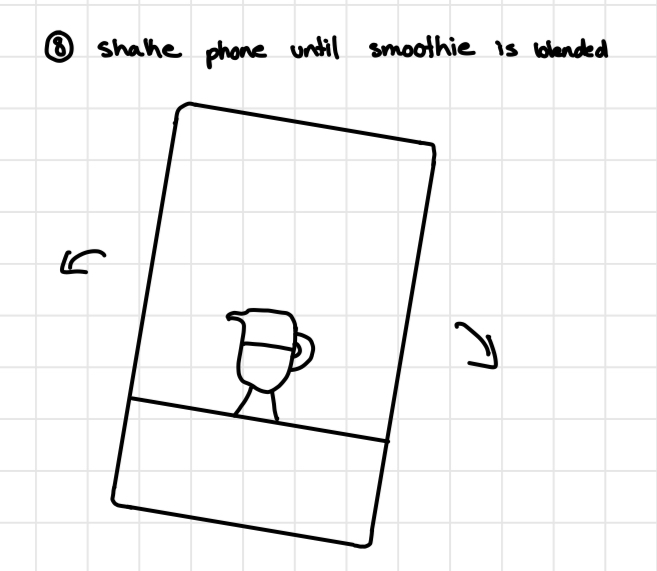 ⑧ shake phone until smoothie is blended